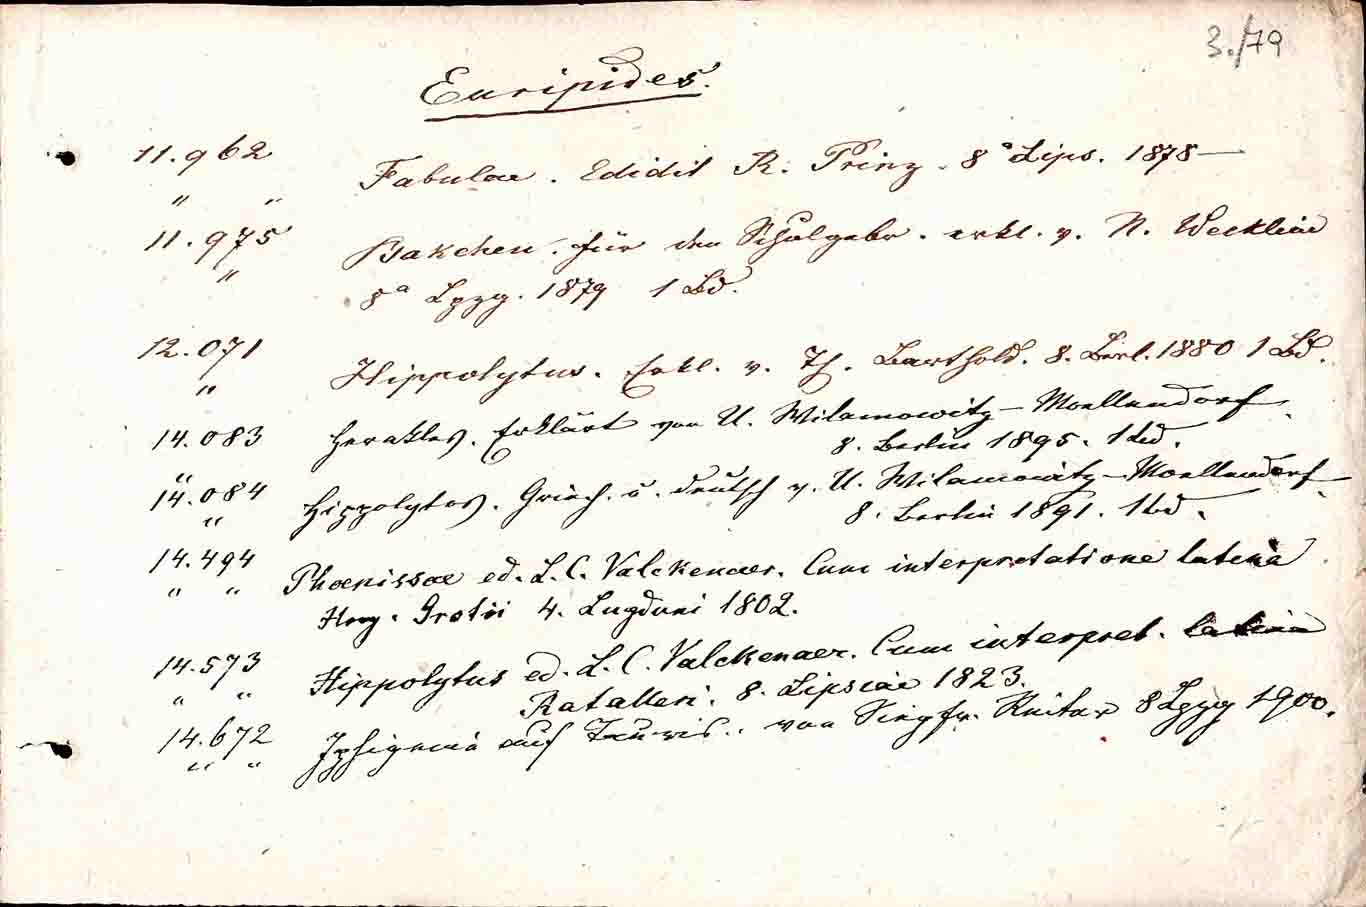 3./79
Euripides.
11.962 Fabulae. Edidit R. Prinz. 8° Lips. 1878—
" "
11.975 Bakchen. für den Schulgebr. erkl. v. N. Wecklein
" 8° Lpzg. 1879 1 Bd.
12.071 Hippolytus. Erkl. v. Th. Barthold. 8. Berl. 1880 1 Bd.
"
14.083 Herakles. Erklärt von U. Wilamowitz-Moellendorf.
" 8. Berlin 1895. 1 Bd.
14.084 Hippolytos. Griech. u. deutsch v. U. Wilamowitz-Moellendorf
" 8. Berlin 1891. 1 Bd.
14.494 Phoenissae ed. L. C. Valckenaer. Cum interpretatione latina
" " Hug. Grotii 4. Lugduni 1802.
14.573 Hippolytus ed. L. C. Valckenaer. Cum interpret. latina
" " Ratalleri. 8. Lipsiae 1823.
14.672 Iphigenie auf Tauris. von Siegfr. 8 Lpzg 1900.
" "